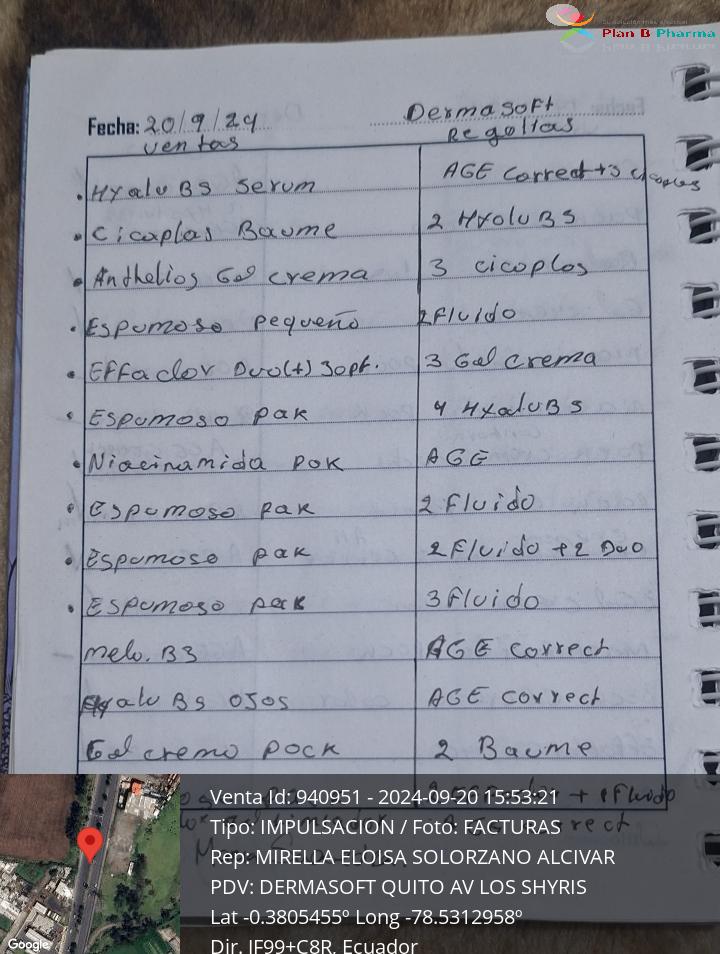 Plan B Pharma
Fecha: 20/9/24 Dermasoft
ventas Regalias
. Hyalu B5 serum AGE correct + 3 cicaplas
. Cicaplas Baume 2 Hyalu B5
. Anthelios Gel crema 3 cicaplas
. Espumoso pequeño 2 Fluido
. Effaclar Duo(+) 30pt. 3 Gel crema
. Espumoso pak 4 Hyalu B5
. Niacinamida pak AGE
. Espumoso pak 2 Fluido
. Espumoso pak 2 Fluido + 2 Duo
. Espumoso pack 3 Fluido
Mela. B3 AGE correct
Hyalu B5 ojos AGE correct
Gel crema pack 2 Baume
+ 1 Fluido
Venta Id: 940951 - 2024-09-20 15:53:21
Tipo: IMPULSACION / Foto: FACTURAS
Rep: MIRELLA ELOISA SOLORZANO ALCIVAR
PDV: DERMASOFT QUITO AV LOS SHYRIS
Lat -0.3805455º Long -78.5312958º
Dir. JF99+C8R, Ecuador
Google